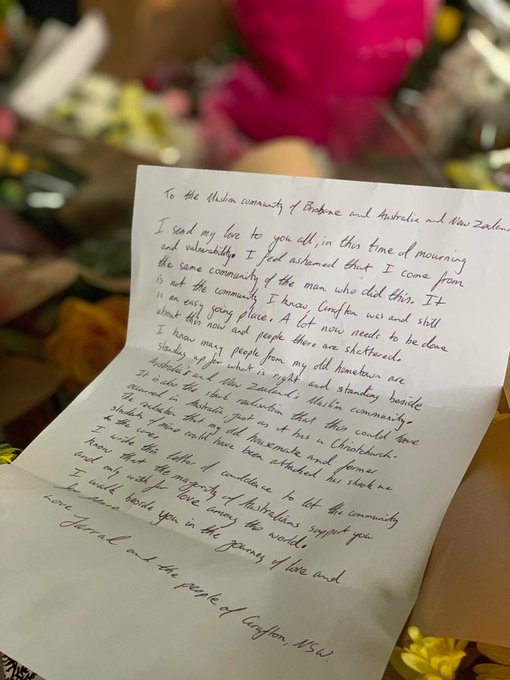 To the Muslim community of Brisbane and Australia and New Zealand
I send my love to you all, in this time of mourning
and vulnerability. I feel ashamed that I come from
the same community of the man who did this. It
is not the community I know, Grafton was and still
is an easy going place. A lot now needs to be done
about this now and people there are shattered.
I know many people from my old hometown are
standing up for what is right and standing beside
Australia's and New Zealand's Muslim community.
It is also the stark realisation that this could have
occurred in Australia just as it has in Christchurch.
The realisation that my old housemate and former
students of mine could have been attacked has shook me
to the core.
I write this letter of condolence to let the community
know that the majority of Australians support you
and only wish for love among the world.
I walk beside you in the journey of love and
for peace
Love Jarrad and the people of Grafton, NSW.